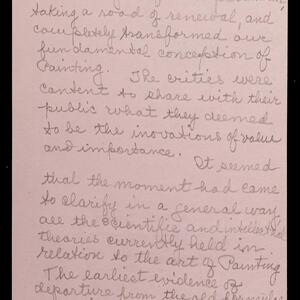 taking a road of renewal, and
completely transformed our
fundamental conception of
Painting. The critics were
content to share with their
public what they deemed
to be the inovations of value
and importance.
It seemed
that the moment had came
to clarify in a general way,
all the scientific and
theories currently held in
relation to the art of Painting
The earliest evidence of
departure from the old formulas